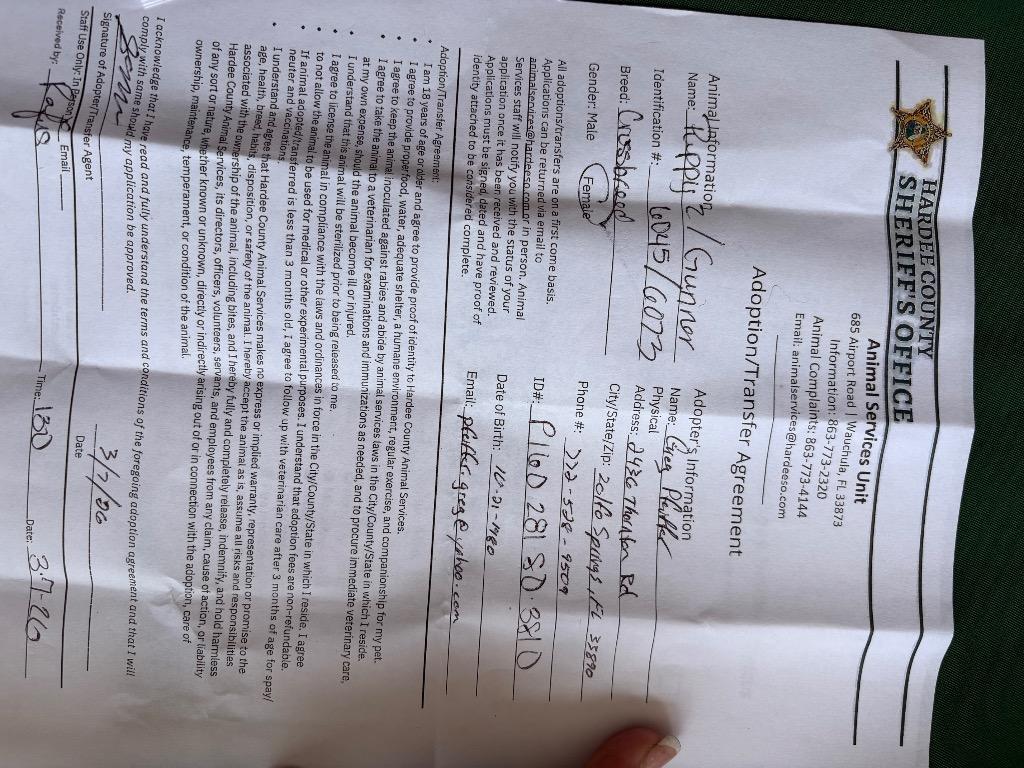 HARDEE COUNTY
SHERIFF'S OFFICE
Animal Services Unit
685 Airport Road | Wauchula, FL 33873
Information: 863-773-2320
Animal Complaints: 863-773-4144
Email: animalservices@hardeeso.com
Adoption/Transfer Agreement
Animal Information
Name: Puppy 2/Gunner
Identification #: 6045/6073
Breed: Crossbreed
Gender: Male Female
Adopter's Information
Name: Greg
Physical
Address: 2486 Rd
City/State/Zip: Zolfo Springs, FL 33890
Phone #: 772-528-9509
ID#: P160 281 80 381 0
Date of Birth: 10-21-1980
Email: @yahoo.com
All adoptions/transfers are on a first come basis.
Applications can be returned via email to
animalservices@hardeeso.com or in person. Animal
Services staff will notify you with the status of your
application once it has been received and reviewed.
Applications must be signed, dated and have proof of
identity attached to be considered complete.
Adoption/Transfer Agreement:
• I am 18 years of age or older and agree to provide proof of identity to Hardee County Animal Services.
• I agree to provide proper food, water, adequate shelter, a humane environment, regular exercise, and companionship for my pet.
• I agree to keep the animal inoculated against rabies and abide by animal services laws in the City/County/State in which I reside.
• I agree to take the animal to a veterinarian for examinations and immunizations as needed, and to procure immediate veterinary care,
at my own expense, should the animal become ill or injured.
• I understand that this animal will be sterilized prior to being released to me.
• I agree to license the animal in compliance with the laws and ordinances in force in the City/County/State in which I reside. I agree
to not allow the animal to be used for medical or other experimental purposes. I understand that adoption fees are non-refundable.
• If animal adopted/transferred is less than 3 months old, I agree to follow up with veterinarian care after 3 months of age for spay/
neuter and vaccinations.
• I understand and agree that Hardee County Animal Services makes no express or implied warranty, representation or promise to the
age, health, breed, habits, disposition, or safety of the animal. I hereby accept the animal as is, assume all risks and responsibilities
associated with the ownership of the animal, including bites, and I hereby fully and completely release, indemnify, and hold harmless
Hardee County Animal Services, its directors, officers, volunteers, servants, and employees from any claim, cause of action, or liability
of any sort or nature, whether known or unknown, directly or indirectly arising out of or in connection with the adoption, care of
ownership, maintenance, temperament, or condition of the animal.
I acknowledge that I have read and fully understand the terms and conditions of the foregoing adoption agreement and that I will
comply with same should my application be approved.
3/7/26
Signature of Adopter/Transfer Agent Date
Staff Use Only: In Person Email
Received by: Time: 130 Date: 3-7-26